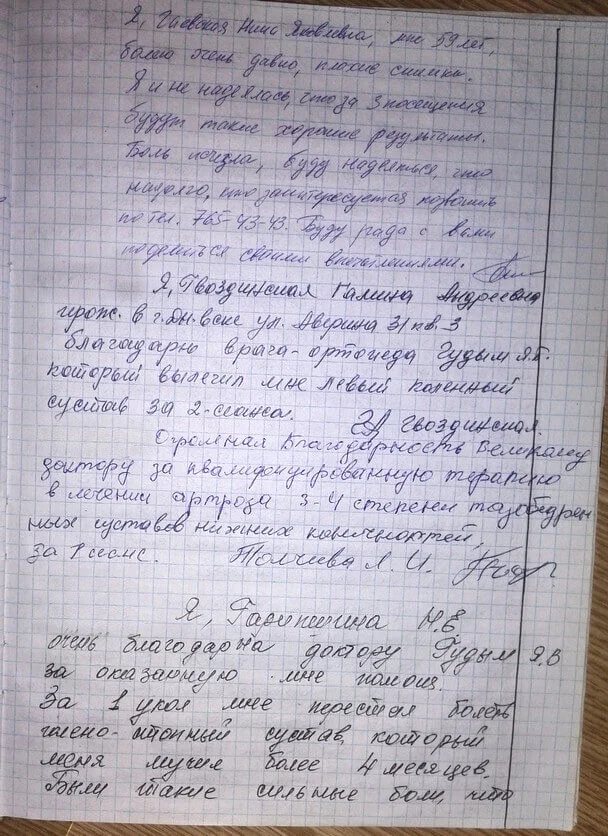 Я, Гаевская Нина Яковлевна, мне 59 лет,
болею очень давно, плохие снимки.
Я и не надеялась, что за 3 посещения
будут такие хорошие результаты.
Боль исчезла, буду надеяться, что
надолго, кто заинтересуется позвонить
по тел. 765-43-43. Буду рада с вами
поделиться своими впечатлениями.
Я, Гвоздинская Галина Андреевна
прож. в г. Дн-вске ул. Аверина 31 кв. 3
благодарю врача-ортопеда Гудым Я.В.
который вылечил мне левый коленный
сустав за 2-сеанса. Гвоздинская.
Огромная Благодарность Великому
доктору за квалифицированную терапию
в лечении артроза 3-4 степени тазобедрен
ных суставов нижних конечностей,
за 1 сеанс. Толчива Л. И.
Я, Гаркишина Н.Е
очень благодарна доктору Гудым Я.В
за оказанную мне помощ.
За 1 укол мне перестал болеть
голено-стопный сустав, который
меня мучил более 4 месяцев.
Были такие сильные боли, что